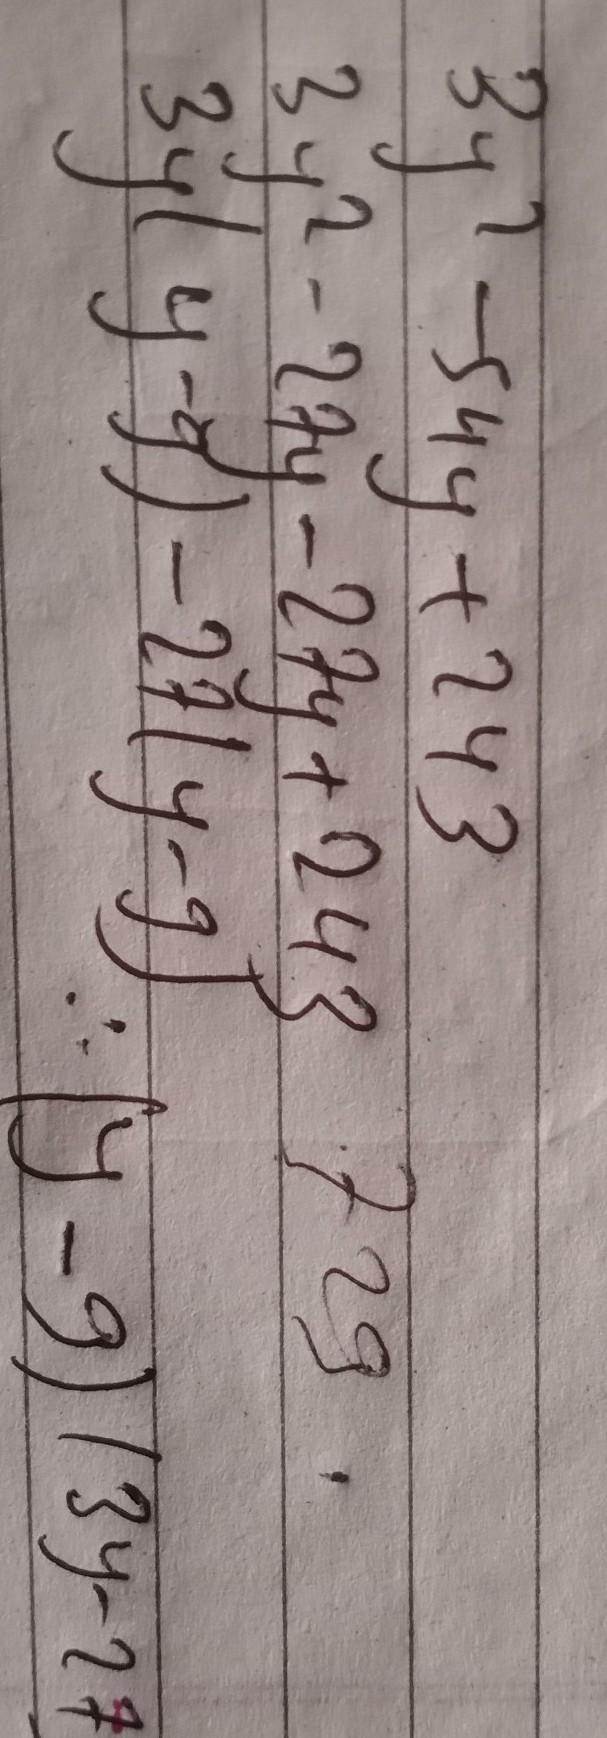 3y² - 54y + 243
3y² - 27y - 27y + 243 729.
3y(y - 9) - 27(y - 9)
∴ (y - 9)(3y - 27